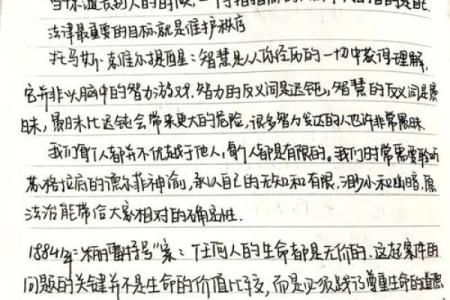 法律最重要的目标就是维护秩序
托马斯·索维尔提醒:智慧是人从你经历的一切中获得理解,
它并非人脑中的智力游戏.智力的反义词是迟钝,智慧的反义词是愚
昧,愚昧比迟钝会带来更大的危险,很多智力发达的人也许非常愚昧.
我们每个人都并不优越于他人,每个人都是有限的。我们时常需要聆听
苏格拉底的德尔菲神谕,承认自己的无知和有限,渺小和幽暗,愿
法治能带给大家相对的确定性.
1884年:"木犀草号"案:任何人的生命都是无价的.这起案件的
问题的关键并不是生命的价值比较,而是必须践行尊重生命的道德